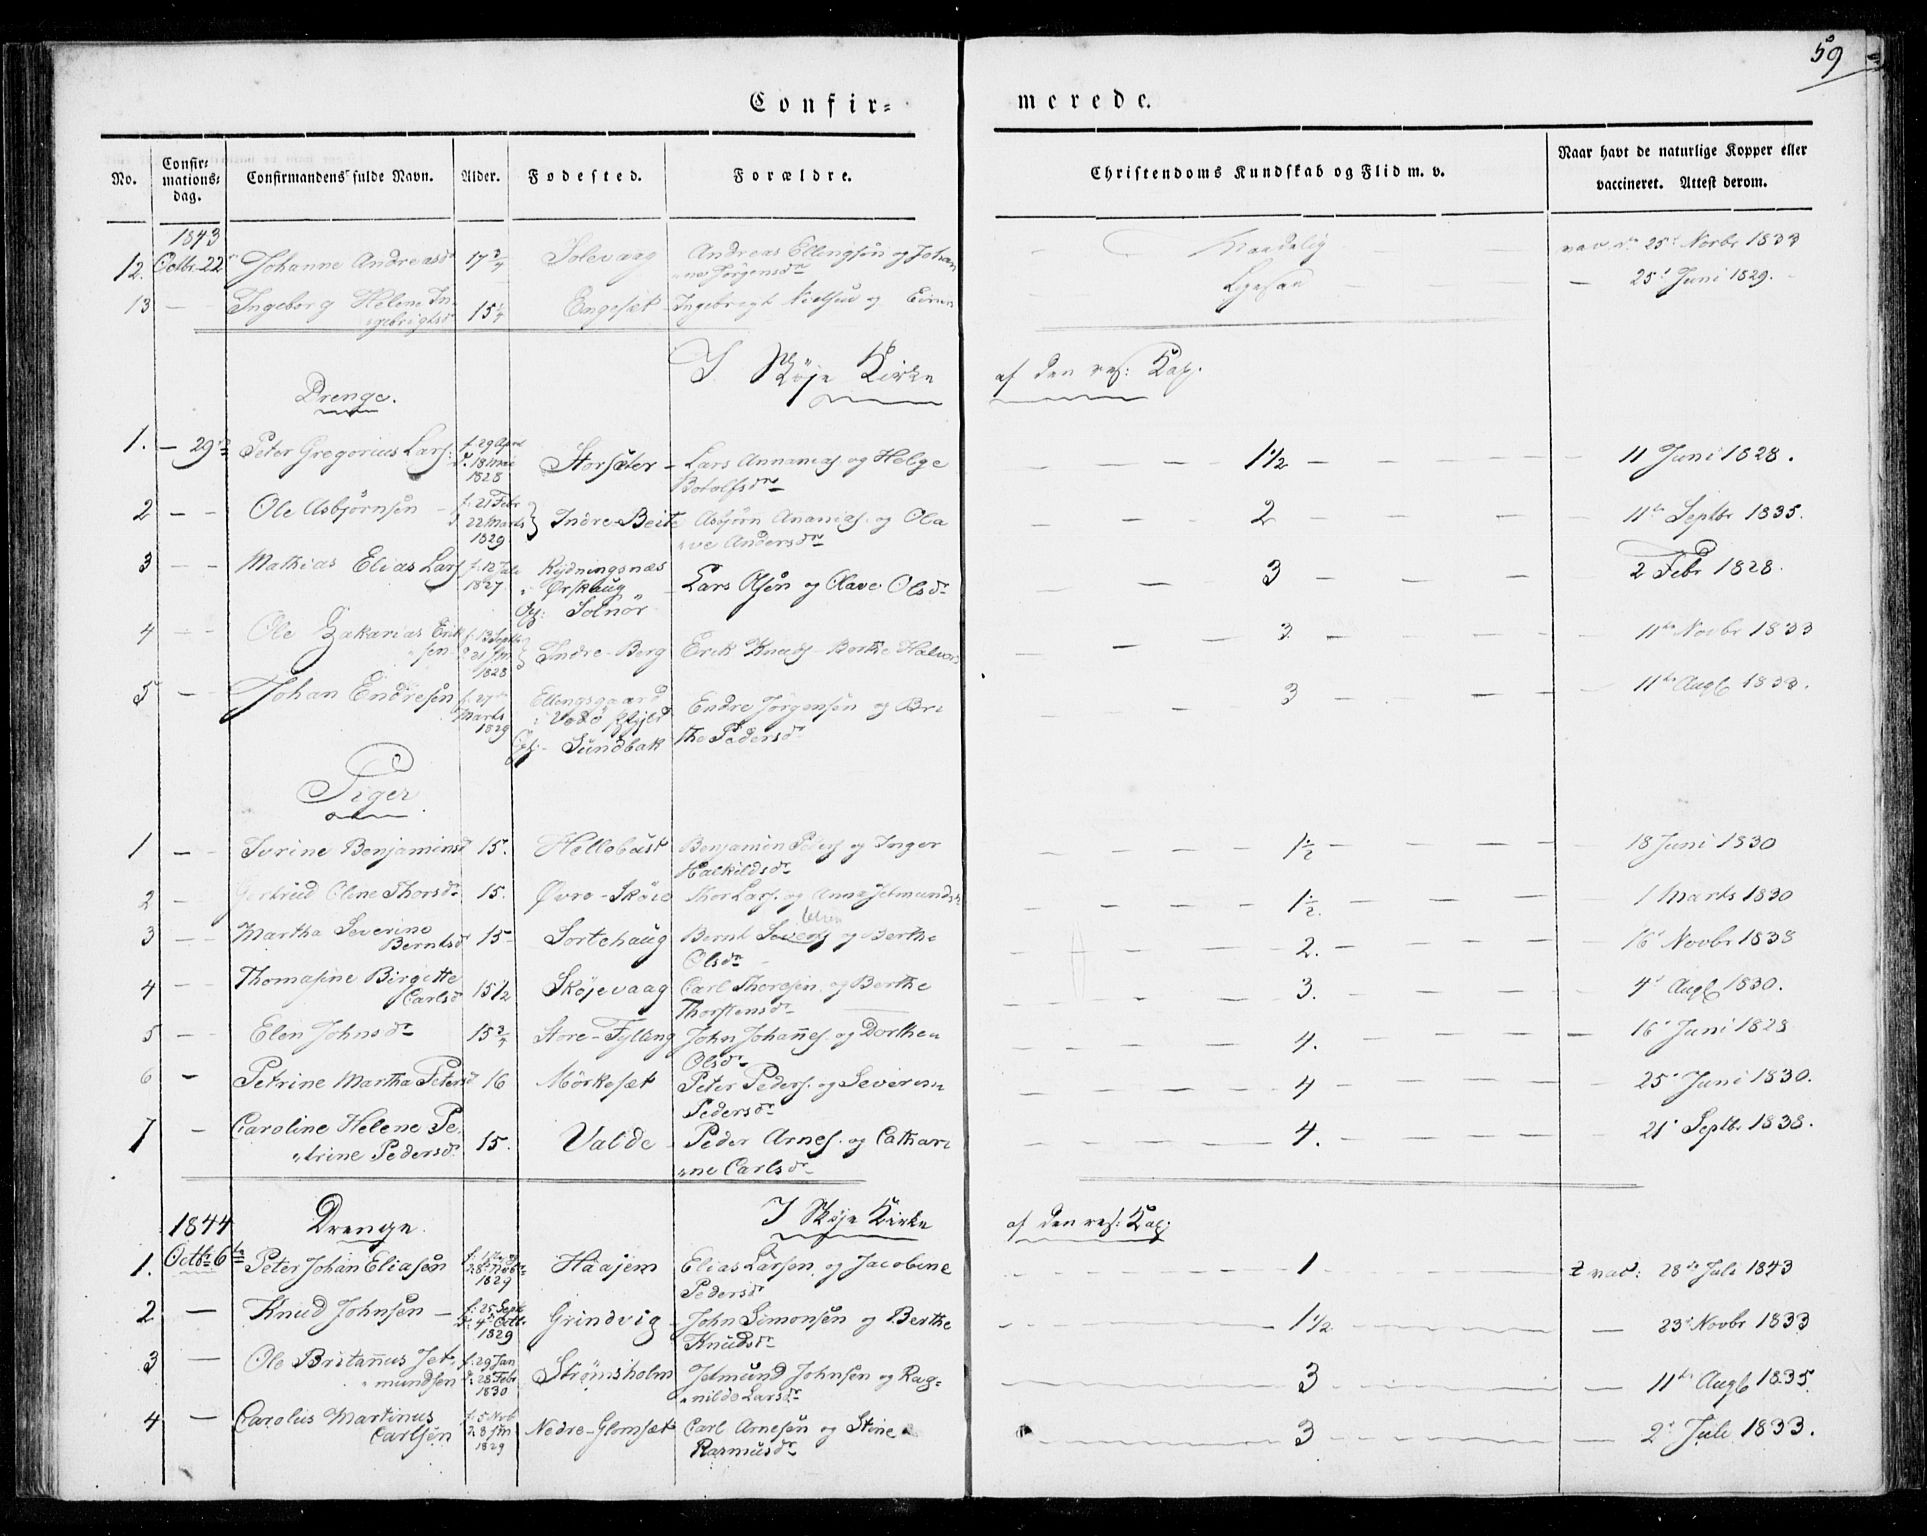 59
Confir= merede.
No. Confir= mations= dag. Confirmandens fulde Navn. Alder. Fødested. Forældre. Christendoms Kundskab og Flid m. v. Naar havt de naturlige Kopper eller vaccineret. Attest derom.
1843
12. Octbr. 22 Johanne Andreasdr 17 3/4 Solevaag Andreas Ellingsøn og Johan
"ne Jørgensdr Maadelig vac. d. 25d Novbr 1833
13 — — Ingeborg Helene In=
gebrigtsdr 15 1/4 Engesæt Ingebrigt Nielsen og Ligesaa — 25d Juni 1829.
I Skøje Kirke af den res: Kap.
Drenge.
1. — 29de Peter Gregorius Lars: f. 29 April
d. 18 Mai
1828 Storsæter Lars Annanias og Helge
Botolfsdr 1 1/2 11 Juni 1828.
2 — — Ole Asbjørnsen f. 21 Febr
d. 22 Marts
1829 Indre-Beite Asbjørn Ananias. og Ola
"ve Andersdr 2 11te Septbr 1835.
3 — — Mathias Elias Lars f. 12
1827 Rydningsnæs
i Ørskoug
Oph: Solnør Lars Olsen og Olave Olsdr 3 2 Febr 1828.
4 — — Ole Zakarias Erik
"sen f. 13 Septbr
1828 Indre-Berg Erik Knuds. Berthe Halvors 3 11te Novbr 1833
5 — Johan Endresen f. 27
Marts
1829 Ellingsgaard
i Vedø
Oph. Sundbak Endre Jørgensen og Bri
the Pedersdr 3 11te Augs 1833.
Piger
1 — Ivrine Benjaminsd 15. Hellebust Benjamin Peders og Inger
Halkildsdr 1 1/2 18 Juni 1830
2 Gertrud Oline Thorsdr 15. Øvre-Skøie Thor Lars. og Anne Jetmundsdr 1 1/2. 1 Marts 1830
3 — — Martha Severine
Berntsd 15 Sortehaug Bernt Severs og Berthe
Olsdr 2. 16d Novbr 1838
4 — — Thomasine Birgitte
Carlsd 15 1/2 Skøjevaag Carl Thoresen og Berthe
Thorstensdr 3. 4d Augs 1830.
5 — Elen Johnsdr 15 3/4 Store-Fylling John Johannes. og Dorthea
Olsdr 4. 16d Juni 1828
6 — Petrine Martha Petersd 16 Mørkesæt Peter Peders. og Severine
Pedersdr 4 25d Juni 1830.
7 — Caroline Helene Pe=
"trine Pedersd. 15. Valde Peder Arnes. og Cathari
"ne Carlsdr 4. 21d Septbr 1838.
1844 Drenge. I Skøje Kirke af den res: Kap:
1. Octbr 6te Peter Johan Eliasen
1829 Haajem Elias Larsen og Jacobine
Pedersdr 1 vac: 28de Juli 1843
2 — Knud Johnsen — f. 25 Sept
d. 4d Octbr
1829 Grindvig John Simonsen og Berthe
Knudsdr 1 1/2 — 23d Novbr 1833
3 — Ole Britanus Jet
"mundsen f. 29 Jan
d. 28 Febr
1830 Strømsholm Jetmund Johnsen og Rag=
"nilde Larsdr 3 — 11te Augs 1835.
4 — Carolus Martinus
Carlsen f. 5 Nov
d. 8
1829 Nedre-Glomsæt Carl Arnesen og Stine
Rasmusdr 3 — 2d Juli 1833.